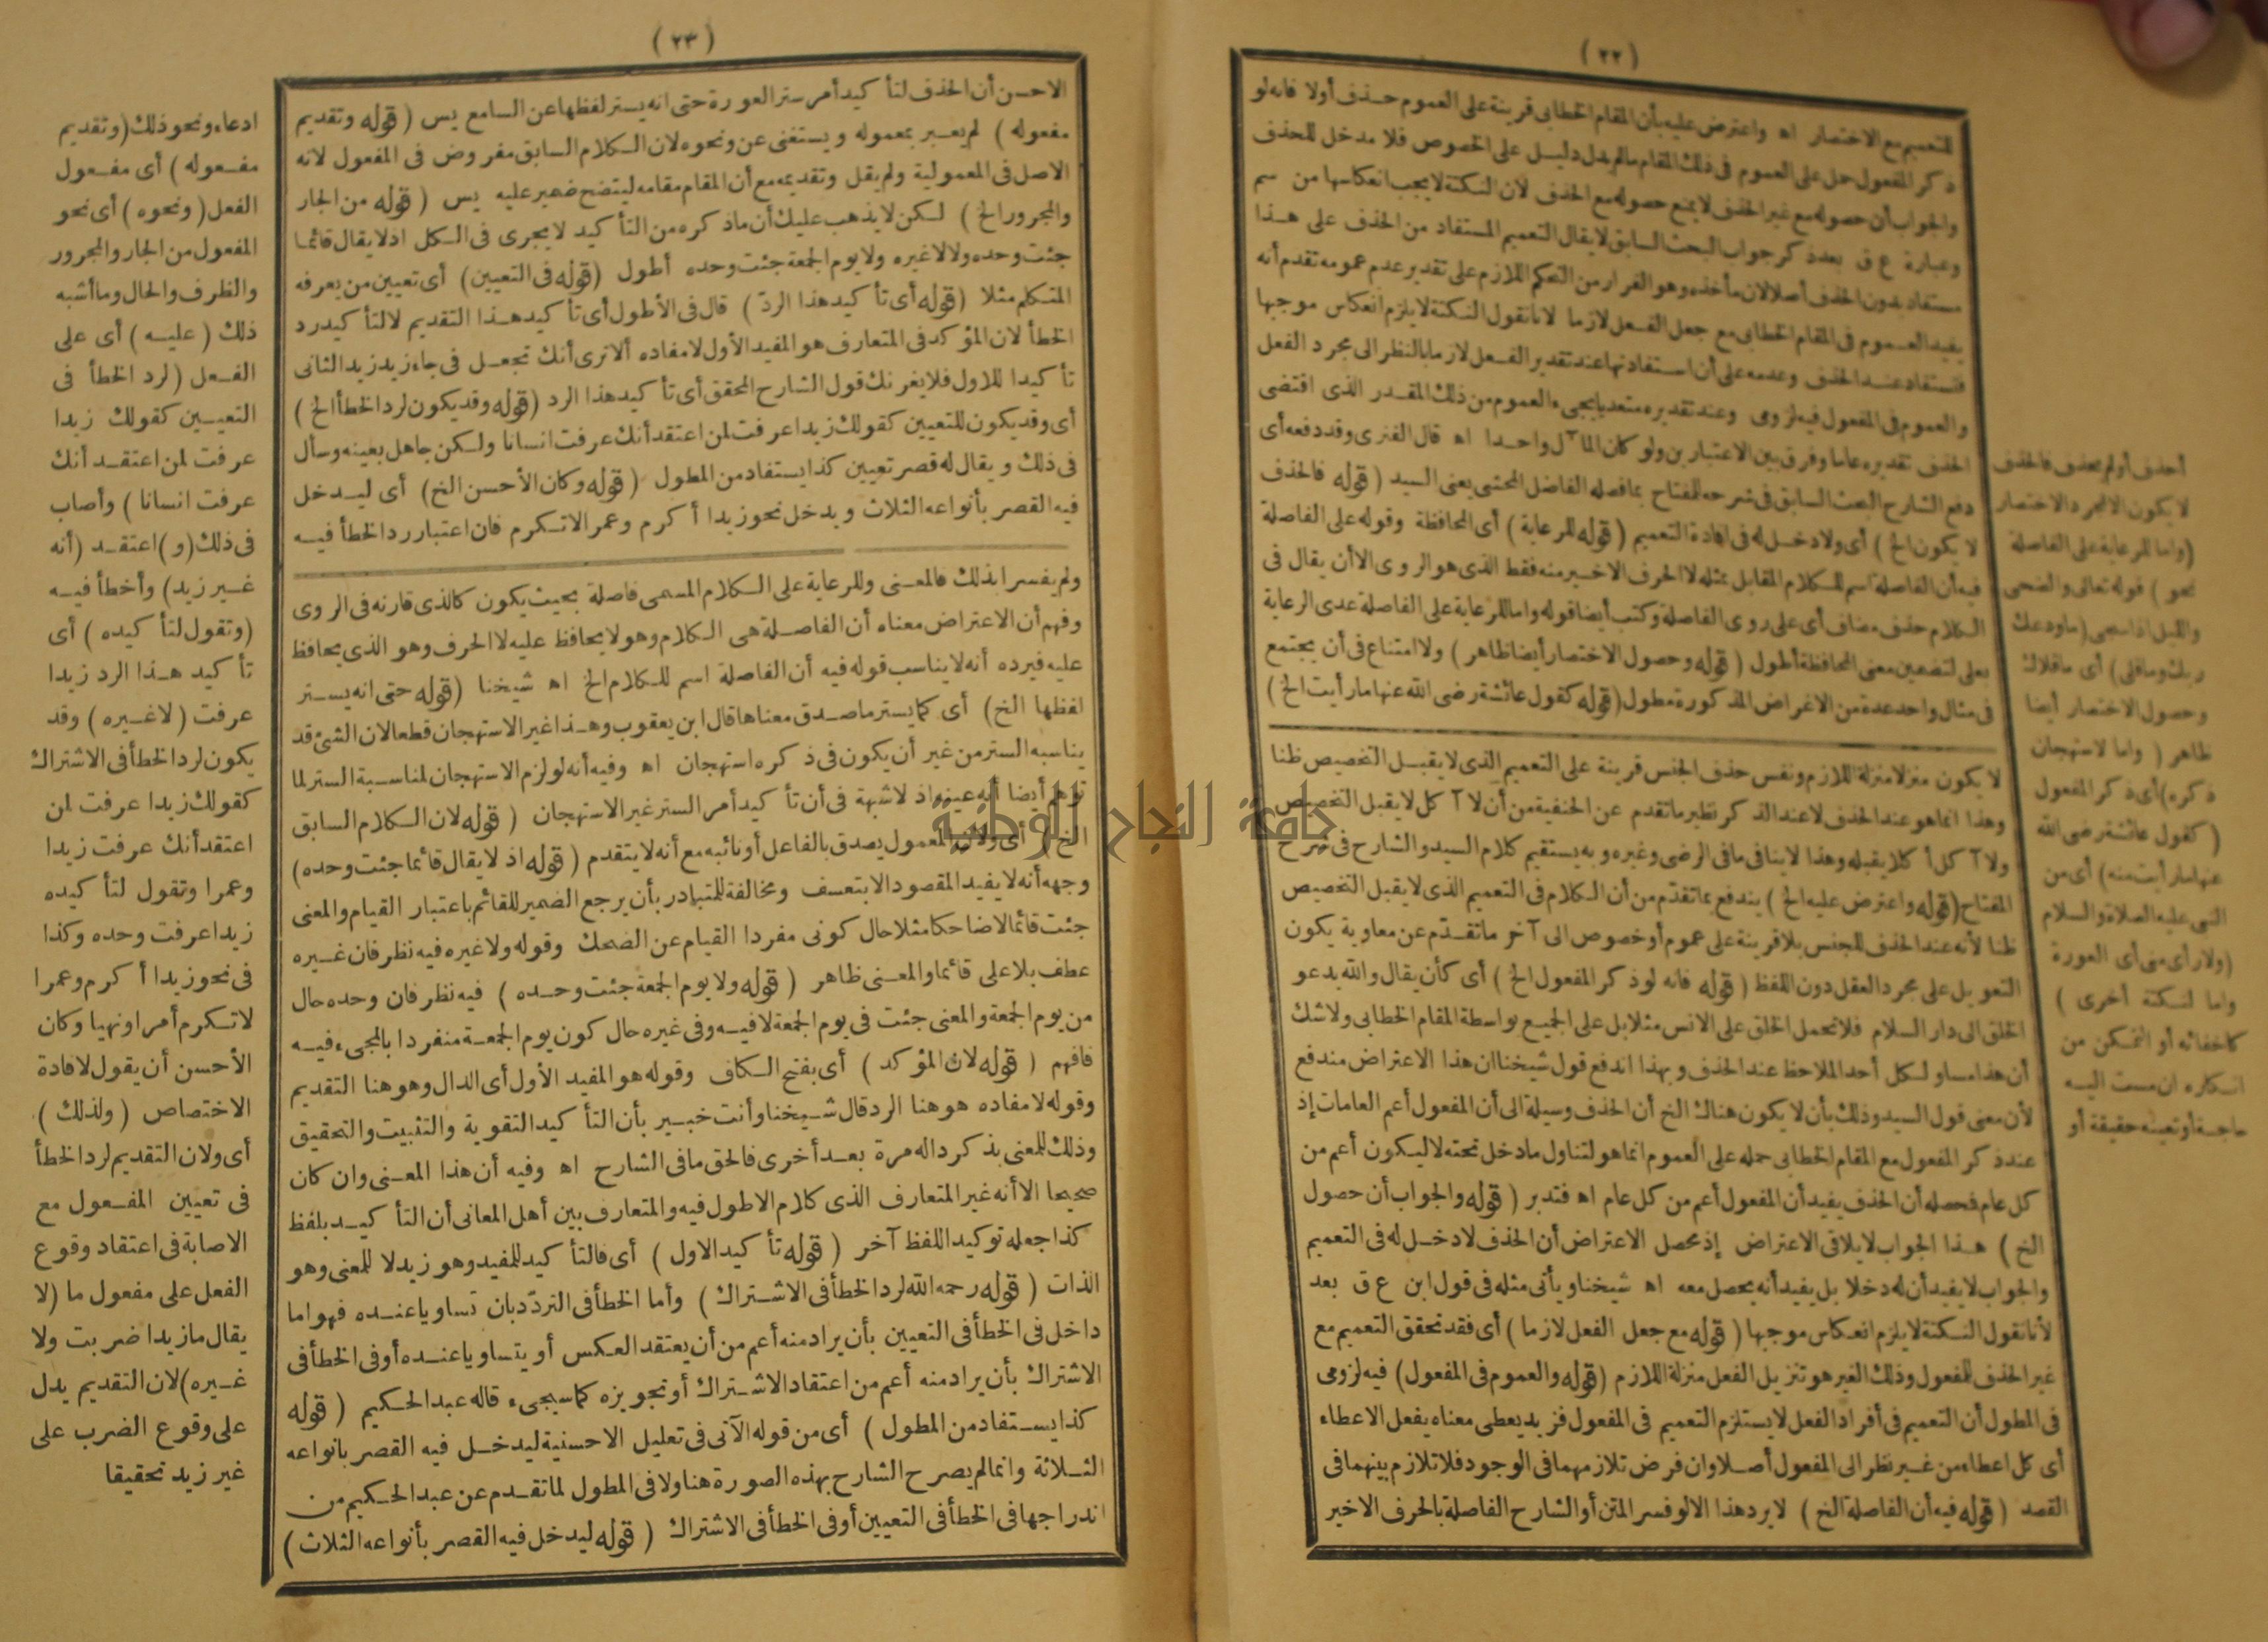 ( ٢٢ )
للتعميم مع الاختصار اه واعترض عليه بأن المقام الخطابى قرينة على العموم حذف أولا فانه لو
ذكر المفعول حمل على العموم فى ذلك المقام مالم يدل دليل على الخصوص فلا مدخل للحذف
والجواب أن حصوله مع غير الحذف لا يمنع حصوله مع الحذف لان النكتة لا يجب انعكاسها من سم
وعبارة ع ق بعد ذكر جواب البحث السابق لا يقال التعميم المستفاد من الحذف على هذا
مستفاد بدون الحذف أصلا لان مأخذه وهو الفرار من التحكم اللازم على تقدير عدم عمومه تقدم أنه
يفيد العموم فى المقام الخطابى مع جعل الفعل لازما لانا نقول النكتة لا يلزم انعكاس موجبها
فتستفاد عند الحذف وعدمه على أن استفادتها عند تقدير الفعل لازما بالنظر الى مجرد الفعل
والعموم فى المفعول فيه لزومى وعند تقديره متعديا يجىء العموم من ذلك المقدر الذى اقتضى
الحذف تقديره عاما وفرق بين الاعتبارين ولو كان المآل واحدا اه قال الفنرى وقد دفعه أى
دفع الشارح البحث السابق فى شرحه للمفتاح بما فصله الفاضل المحشى يعنى السيد ( قوله فالحذف
لا يكون الخ ) أى ولا دخل له فى افادة التعميم ( قوله للرعاية ) أى المحافظة وقوله على الفاصلة
فيه أن الفاصلة اسم للكلام المقابل بمثله لا الحرف الاخير منه فقط الذى هو الروى الا أن يقال فى
الكلام حذف مضاف أى على روى الفاصلة وكتب أيضا قوله واما للرعاية على الفاصلة عدى الرعاية
بعلى لتضمين معنى المحافظة أطول ( قوله وحصول الاختصار أيضا ظاهر ) ولا امتناع فى أن يجتمع
فى مثال واحد عدة من الاغراض المذكورة مطول ( قوله كقول عائشة رضى الله عنها ما رأيت الخ )
لا يكون منزلا منزلة اللازم ونفس حذف الجنس قرينة على التعميم الذى لا يقبل التخصيص ظنا
وهذا انما هو عند الحذف لا عند الذكر نظير ما تقدم عن الحنفية من أن لا آكل لا يقبل التخصيص
ولا آكل أكلا يقبله وهذا لا ينافى ما فى الرضى وغيره وبه يستقيم كلام السيد والشارح فى شرح
المفتاح ( قوله واعترض عليه الخ ) يندفع بما تقدّم من أن الكلام فى التعميم الذى لا يقبل التخصيص
ظنا لأنه عند الحذف للجنس بلا قرينة على عموم أو خصوص الى آخر ما تقدّم عن معاوية يكون
التعويل على مجرد العقل دون اللفظ ( قوله فانه لو ذكر المفعول الخ ) أى كأن يقال والله يدعو
الخلق الى دار السلام فلا تحمل الخلق على الانس مثلا بل على الجميع بواسطة المقام الخطابى ولا شك
أن هذا مساو لكل أحد الملاحظ عند الحذف وبهذا اندفع قول شيخنا ان هذا الاعتراض مندفع
لأن معنى قول السيد وذلك بأن لا يكون هناك الخ أن الحذف وسيلة الى أن المفعول أعم العامات إذ
عند ذكر المفعول مع المقام الخطابى حمله على العموم انما هو لتناول ما دخل تحته لا ليكون أعم من
كل عام فحصله أن الحذف يفيد أن المفعول أعم من كل عام اه فتدبر ( قوله والجواب أن حصول
الخ ) هذا الجواب لا يلاقى الاعتراض إذ محصل الاعتراض أن الحذف لا دخل له فى التعميم
والجواب لا يفيد أن له دخلا بل يفيد أنه يحصل معه اه شيخنا ويأتى مثله فى قول ابن ع ق بعد
لأنا نقول النكتة لا يلزم انعكاس موجبها ( قوله مع جعل الفعل لازما ) أى فقد تحقق التعميم مع
غير الحذف للمفعول وذلك الغير هو تنزيل الفعل منزلة اللازم ( قوله والعموم فى المفعول ) فيه لزومى
فى المطول أن التعميم فى أفراد الفعل لا يستلزم التعميم فى المفعول فزيد يعطى معناه يفعل الاعطاء
أى كل اعطاء من غير نظر الى المفعول أصلا وان فرض تلازمهما فى الوجود فلا تلازم بينهما فى
القصد ( قوله فيه أن الفاصلة الخ ) لا يرد هذا الا لو فسر المتن أو الشارح الفاصلة بالحرف الاخير
أحذف أو لم يحذف فالحذف
لا يكون الا لمجرد الاختصار
( واما للرعاية على الفاصلة
نحو ) قوله تعالى والضحى
والليل اذا سجى ( ما ودعك
ربك وما قلى ) أى ما قلاك
وحصول الاختصار أيضا
ظاهر ( واما لاستهجان
ذكره ) أى ذكر المفعول
( كقول عائشة رضى الله
عنها ما رأيت منه ) أى من
النبى عليه الصلاة والسلام
( ولا رأى منى أى العورة
واما لنكتة أخرى )
كاخفائه أو التمكن من
انكاره ان مست اليه
حاجة أو تعينه حقيقة أو
( ٢٣ )
الاحسن أن الحذف لتأكيد أمر ستر العورة حتى انه يستر لفظها عن السامع يس ( قوله وتقديم
مفعوله ) لم يعبر بمعموله ويستغنى عن ونحوه لان الكلام السابق مفروض فى المفعول لانه
الاصل فى المعمولية ولم يقل وتقديمه مع أن المقام مقامه ليتضح ضمير عليه يس ( قوله من الجار
والمجرور الخ ) لكن لا يذهب عليك أن ما ذكره من التأكيد لا يجرى فى الكل اذ لا يقال قائما
جئت وحده ولا لا غيره ولا يوم الجمعة جئت وحده أطول ( قوله فى التعيين ) أى تعيين من يعرفه
المتكلم مثلا ( قوله أى تأكيد هذا الردّ ) قال فى الأطول أى تأكيد هذا التقديم لا لتأكيد رد
الخطأ لان المؤكد فى المتعارف هو المفيد الأول لا مفاده ألا ترى أنك تجعل فى جاء زيد زيد الثانى
تأكيدا للاول فلا يغرنك قول الشارح المحقق أى تأكيد هذا الرد ( قوله وقد يكون لرد الخطأ الخ )
أى وقد يكون للتعيين كقولك زيدا عرفت لمن اعتقد أنك عرفت انسانا ولكن جاهل بعينه وسأل
فى ذلك ويقال له قصر تعيين كذا يستفاد من المطول ( قوله وكان الأحسن الخ ) أى ليدخل
فيه القصر بأنواعه الثلاث ويدخل نحو زيدا أكرم وعمرا لا تكرم فان اعتبار رد الخطأ فيه
ولم يفسرا بذلك فالمعنى وللرعاية على الكلام المسمى فاصلة بحيث يكون كالذى قارنه فى الروى
وفهم أن الاعتراض معناه أن الفاصلة هى الكلام وهو لا يحافظ عليه لا الحرف وهو الذى يحافظ
عليه فيرده أنه لا يناسب قوله فيه أن الفاصلة اسم للكلام الخ اه شيخنا ( قوله حتى انه يستر
لفظها الخ ) أى كما يستر ما صدق معناها قال ابن يعقوب وهذا غير الاستهجان قطعا لان الشئ قد
يناسبه الستر من غير أن يكون فى ذكره استهجان اه وفيه أنه لو لزم الاستهجان لمناسبة الستر لما
توهم أيضا أنه عينه اذ لا شبهة فى أن تأكيد أمر الستر غير الاستهجان ( قوله لان الكلام السابق
الخ ) أى ولان المعمول يصدق بالفاعل أو نائبه مع أنه لا يتقدم ( قوله اذ لا يقال قائما جئت وحده )
وجهه أنه لا يفيد المقصود الا بتعسف ومخالفة للمتبادر بأن يرجع الضمير للقائم باعتبار القيام والمعنى
جئت قائما لا ضاحكا مثلا حال كونى مفردا القيام عن الضحك وقوله ولا غيره فيه نظر فان غيره
عطف بلا على قائما والمعنى ظاهر ( قوله ولا يوم الجمعة جئت وحده ) فيه نظر فان وحده حال
من يوم الجمعة والمعنى جئت فى يوم الجمعة لا فيه وفى غيره حال كون يوم الجمعة منفردا بالمجىء فيه
فافهم ( قوله لان المؤكد ) أى بفتح الكاف وقوله هو المفيد الأول أى الدال وهو هنا التقديم
وقوله لا مفاده هو هنا الرد قال شيخنا وأنت خبير بأن التأكيد التقوية والتثبيت والتحقيق
وذلك للمعنى بذكر داله مرة بعد أخرى فالحق ما فى الشارح اه وفيه أن هذا المعنى وان كان
صحيحا الا أنه غير المتعارف الذى كلام الاطول فيه والمتعارف بين أهل المعانى أن التأكيد بلفظ
كذا جعله توكيد اللفظ آخر ( قوله تأكيد الاول ) أى فالتأكيد للمفيد وهو زيد لا للمعنى وهو
الذات ( قوله رحمه الله لرد الخطأ فى الاشتراك ) وأما الخطأ فى التردّد بان تساويا عنده فهو اما
داخل فى الخطأ فى التعيين بأن يراد منه أعم من أن يعتقد العكس أو يتساويا عنده أو فى الخطأ فى
الاشتراك بأن يراد منه أعم من اعتقاد الاشتراك أو تجويزه كما سيجىء قاله عبد الحكيم ( قوله
كذا يستفاد من المطول ) أى من قوله الآتى فى تعليل الاحسنية ليدخل فيه القصر بانواعه
الثلاثة وانما لم يصرح الشارح بهذه الصورة هنا ولا فى المطول لما تقدم عن عبد الحكيم من
اندراجها فى الخطأ فى التعيين أو فى الخطأ فى الاشتراك ( قوله ليدخل فيه القصر بأنواعه الثلاث )
ادعاء ونحو ذلك ( وتقديم
مفعوله ) أى مفعول
الفعل ( ونحوه ) أى نحو
المفعول من الجار والمجرور
والظرف والحال وما أشبه
ذلك ( عليه ) أى على
الفعل ( لرد الخطأ فى
التعيين كقولك زيدا
عرفت لمن اعتقد أنك
عرفت انسانا ) وأصاب
فى ذلك ( و ) اعتقد ( أنه
غير زيد ) وأخطأ فيه
( وتقول لتأكيده ) أى
تأكيد هذا الرد زيدا
عرفت ( لا غيره ) وقد
يكون لرد الخطأ فى الاشتراك
كقولك زيدا عرفت لمن
اعتقد أنك عرفت زيدا
وعمرا وتقول لتأكيده
زيدا عرفت وحده وكذا
فى نحو زيدا أكرم وعمرا
لا تكرم أمرا ونهيا وكان
الأحسن أن يقول لافادة
الاختصاص ( ولذلك )
أى ولان التقديم لرد الخطأ
فى تعيين المفعول مع
الاصابة فى اعتقاد وقوع
الفعل على مفعول ما ( لا
يقال ما زيدا ضربت ولا
غيره ) لان التقديم يدل
على وقوع الضرب على
غير زيد تحقيقا
جامعة النجاح الوطنية